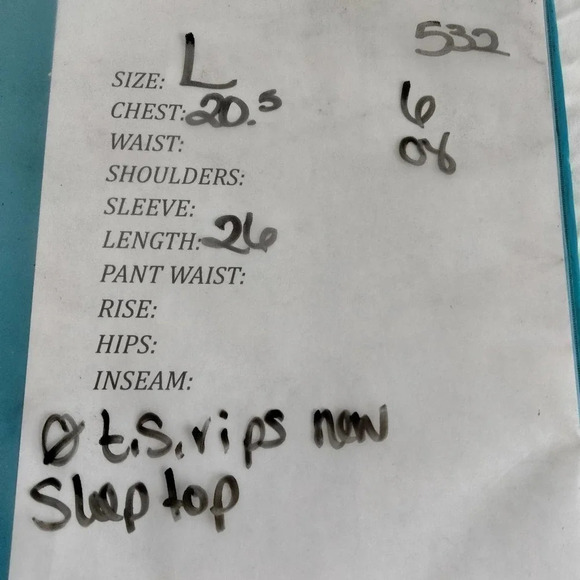 532
SIZE: L
CHEST: 20.5 6
WAIST: 08
SHOULDERS:
SLEEVE:
LENGTH: 26
PANT WAIST:
RISE:
HIPS:
INSEAM:
Ø t.s.rips new
Sleep top